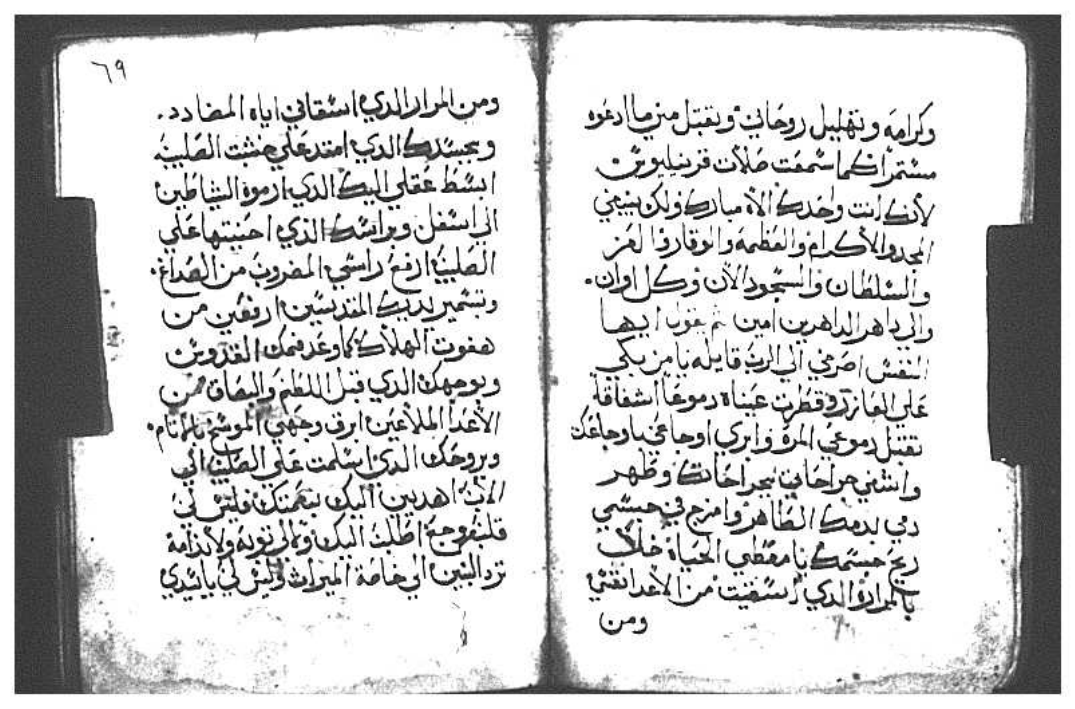 وكرامه وتهليل روحاني وتقبل مني ما ادعوه
مستمرا كما سمعت صلات قرنيليوس
لأنك انت وحدك الاه مبارك ولك ينبغي
المجد والأكرام والعظمه والوقار والعز
والسلطان والسجود الأن وكل اوان.
والي داهر الداهرين امين ثم نقول ايها
النفس اصرخي الي الرب قايله يا من بكي
علي العازر وقطرت عيناه دموعا اشفاقة
تقبل دموعي المره وابري اوجاعي باوجاعك
واشفي جراحاتي بجراحاتك وطهر
دمي بدمك الطاهر وامزج في جسمي
ريح جسمك يا معطي الحياة خلاك
بالمراره الذي اسقيت من الأعدا نفسي
ومن
٦٩
ومن المرار الذي اسقاني اياه المضادد.
وبجسدك الذي امتد علي خشبت الصليب
ابسط عقلي اليك الذي ارموه الشياطين
الي اسفل وبراسك الذي احنيتها علي
الصليب ارفع راسي المضروب من الصداغ.
وتسمير يديك المقدستين ارفعني من
هفوت الهلاك كما وعد فمك القدوس
وبوجهك الذي قبل اللطم والبصاق من
الأعدا الملاعين ابرق وجهي الموسخ بالاتام.
وبروحك الذي اسلمت علي الصليب الي
الأب اهديني اليك بنعمتك وليس لي
قلب موجع اطلب اليك ولالي توبه ولا ندامه
ترد البنين الي خاصة الميراث وليس لي ياسيدي